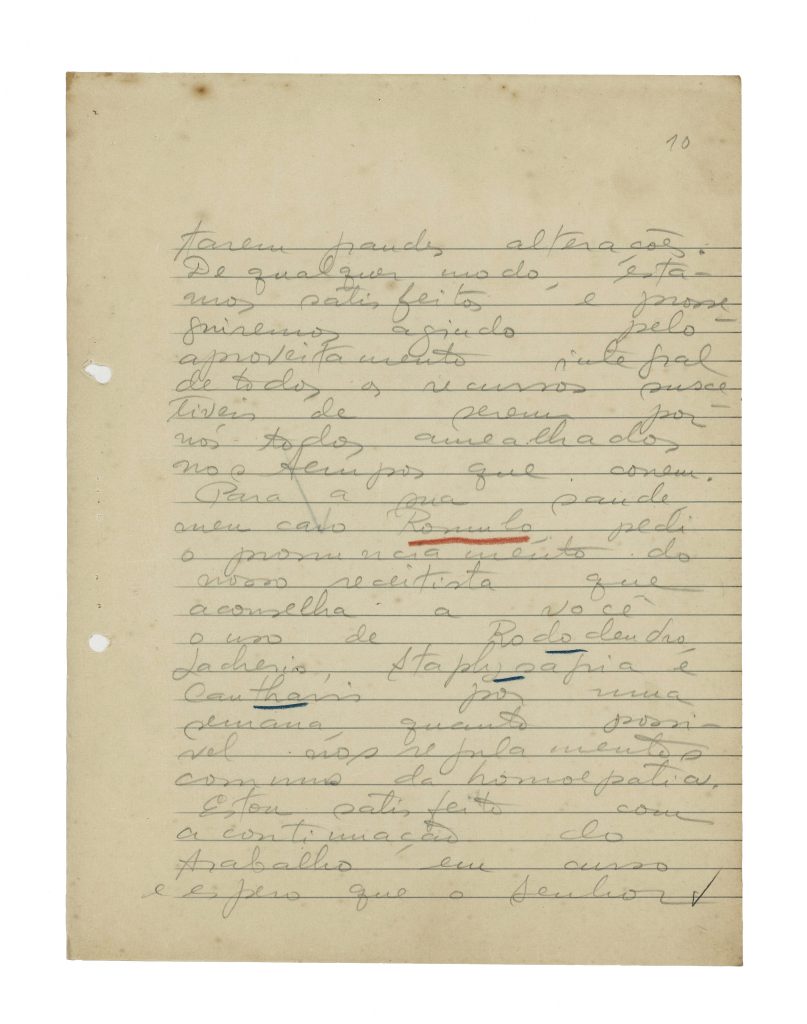 10
tarem grandes alterações.
De qualquer modo, esta-
mos satisfeitos e prosse-
guiremos agindo pelo
aproveitamento integral
de todos os recursos susce-
tiveis de serem por
nós todos amealhados
nos tempos que correm.
Para a sua saude,
meu caro Romulo, pedi
o pronunciamento do
nosso receitista que
aconselha a você
o uso de Rododendro,
Staphysagria e
Cantharis por uma
semana, quanto possi-
vel nos regulamentos
comuns da homoepatia.
Estou satisfeito com
a continuação do
trabalho em curso
e espero que o Senhor